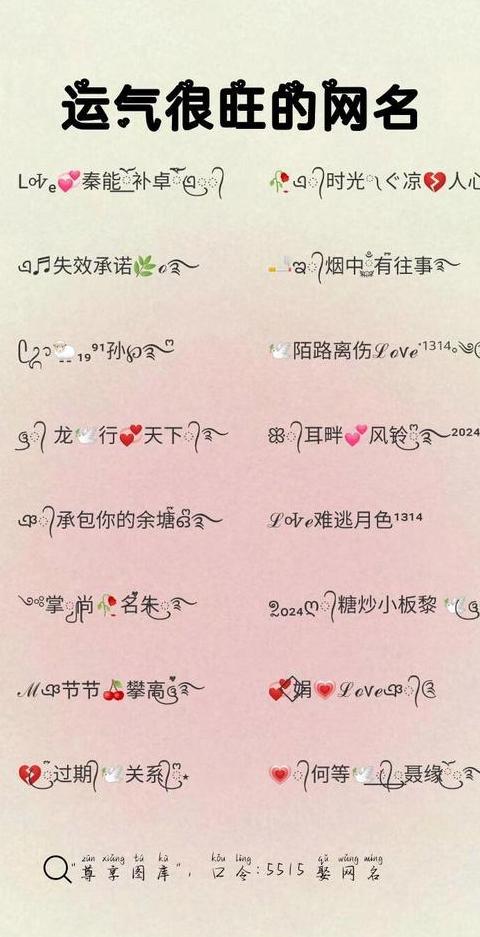 运气很旺的网名
Love💕秦能补卓
🥀时光凉💔人心
♬失效承诺🌿
🚬烟中有往事
🐑₁₉⁹¹孙
🕊陌路离伤ℒℴνℯ¹³¹⁴
龙🕊行💞天下
耳畔💕风铃²⁰²⁴
承包你的余塘
ℒℴνℯ难逃月色¹³¹⁴
掌尚🥀名朱
₂₀₂₄糖炒小板黎🕊
ℳ节节🍒攀高
💞娟💗ℒℴνℯ
💔过期🕊关系
💗何等🕊聂缘
zūn xiǎng tú kù kǒu lìng qǔ wǎng míng
"尊享图库"，口令:5515 娶网名